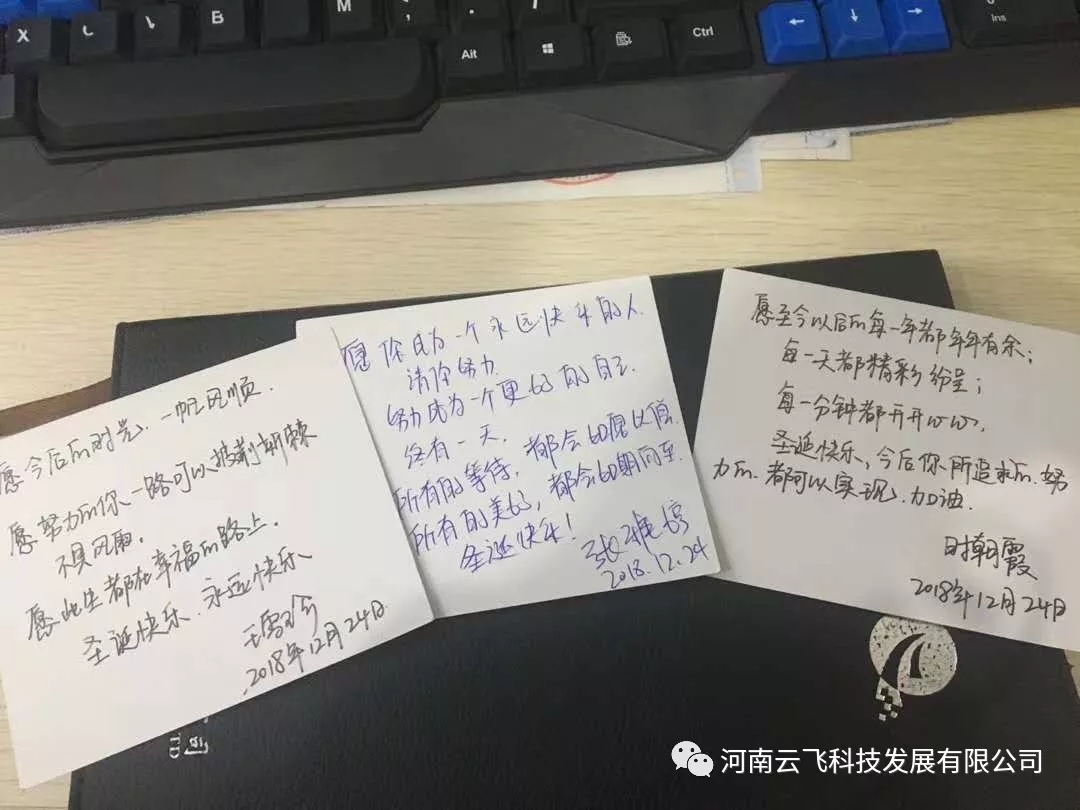 X
B
M
Alt
Ctrl
Ins
愿今后的时光,一帆风顺.
愿努力的你一路可以披荆斩棘
不畏风雨。
愿此生都在幸福的路上。
圣诞快乐.永远快乐
2018年12月24日
愿你成为一个永远快乐的人.
请你努力.
努力成为一个更好的自己.
终有一天.
所有的等待,都会如愿以偿.
所有的美好,都会如期而至.
圣诞快乐!
张雅婷
2018.12.24
愿至今以后的每一年都年年有余;
每一天都精彩纷呈;
每一分钟都开开心心,
圣诞快乐,今后你所追求的、努
力的、都可以实现.加油.
时朝霞
2018年12月24日
TD
河南云飞科技发展有限公司